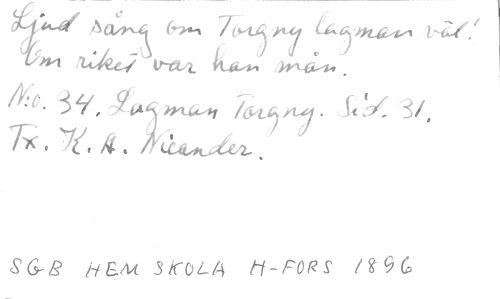 Ljud sång om Torgny lagman väl!
Om riket var han mån.
N:o. 34. Lagman Torgny. Sid. 31.
Tx. K. A. Nicander.
SGB HEM SKOLA H-FORS 1896